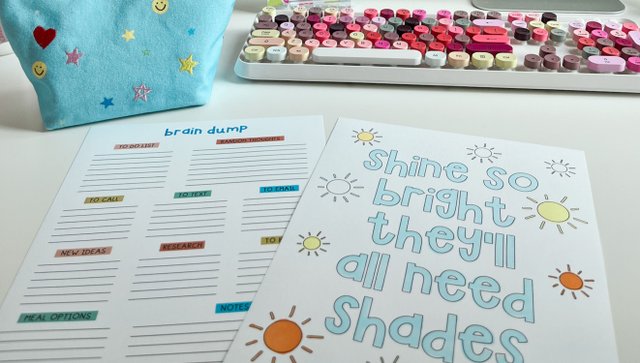 brain dump
TO DO LIST
RANDOM THOUGHTS
TO CALL
TO TEXT
TO EMAIL
NEW IDEAS
RESEARCH
TO
MEAL OPTIONS
NOTES
Shine so
bright
they'll
all need
Shades